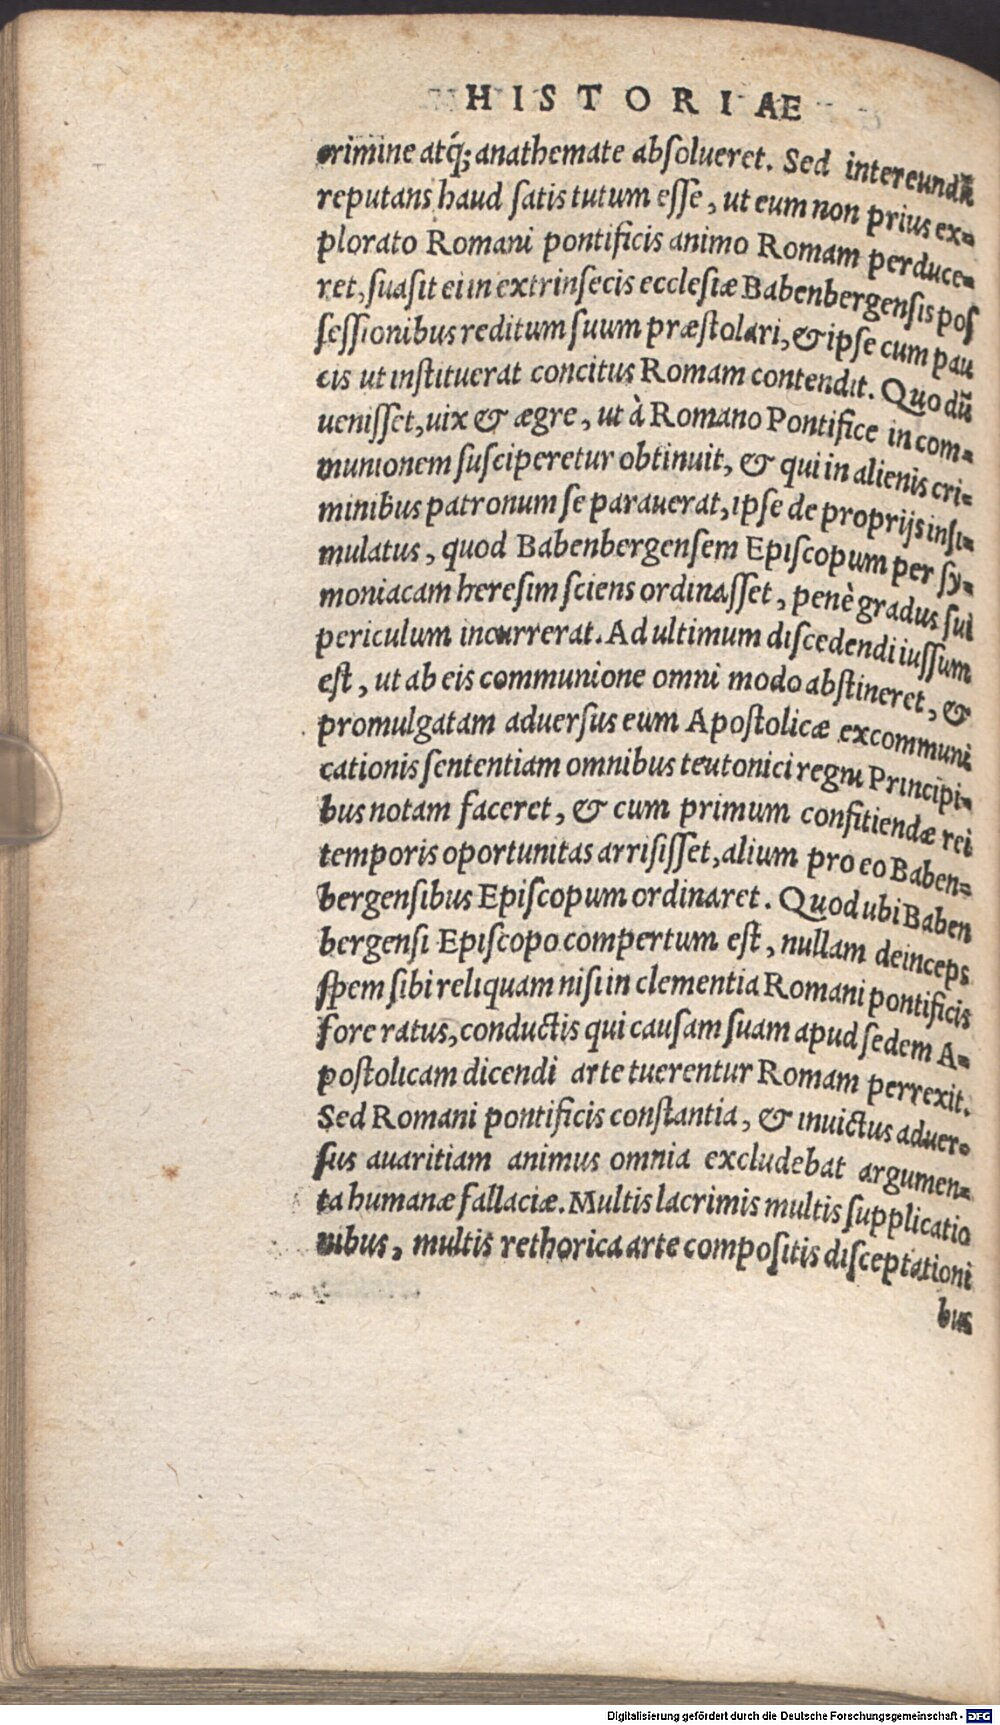 HISTORIAE
crimine atq́; anathemate absolueret. Sed intereundũ
reputans haud satis tutum esse, ut eum non prius ex-
plorato Romani pontificis animo Romam perduce-
ret, suasit ei in extrinsecis ecclesiæ Babenbergensis pos
sessionibus reditum suum præstolari, & ipse cum pau
cis ut instituerat concitus Romam contendit. Quo dũ
uenisset, uix & ægre, ut à Romano Pontifice in com-
munionem susciperetur obtinuit, & qui in alienis cri-
minibus patronum se parauerat, ipse de proprijs insi-
mulatus, quod Babenbergensem Episcopum per sy-
moniacam heresim sciens ordinasset, penè gradus sui
periculum incurrerat. Ad ultimum discedendi iussum
est, ut ab eis communione omni modo abstineret, &
promulgatam aduersus eum Apostolicæ excommuni
cationis sententiam omnibus teutonici regni Principi-
bus notam faceret, & cum primum confitiendæ rei
temporis oportunitas arrisisset, alium pro eo Baben-
bergensibus Episcopum ordinaret. Quod ubi Baben
bergensi Episcopo compertum est, nullam deinceps
spem sibi reliquam nisi in clementia Romani pontificis
fore ratus, conductis qui causam suam apud sedem A-
postolicam dicendi arte tuerentur Romam perrexit.
Sed Romani pontificis constantia, & inuictus aduer-
sus auaritiam animus omnia excludebat argumen-
ta humanæ fallaciæ. Multis lacrimis multis supplicatio
nibus, multis rethorica arte compositis disceptationi
bus
Digitalisierung gefördert durch die Deutsche Forschungsgemeinschaft - DFG